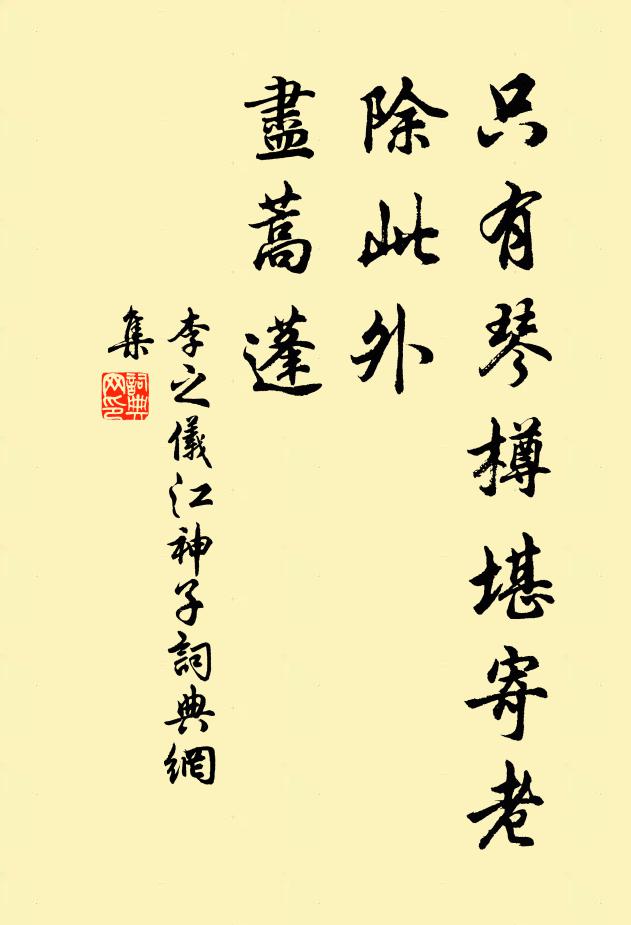 只有琴樽堪寄老
除此外
盡蒿蓬
李之儀江神子詞典網
集
詞典網印